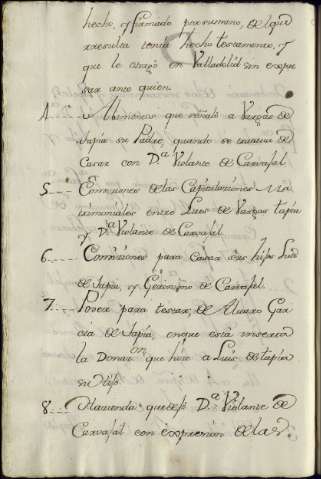 hecho, y firmado por su mano, del qual
resulta tenia hecho testamento, y
que le otorgò en Valladolid sin expre
sar ante quien.
4 Memorias que señalò a Vargas de
tapia su Padre, quando se trataba de
Casar con D.ª Violante de Carvajal
5 de las Capitulaciones Ma
trimoniales entre Luis de Vargas tapia
y D.ª Violante de Carvajal
6 Comisiones para Casar a sus hijos Luis
de tapia, y Geronimo de Carvajal.
7. Poder para testar, de Alvaro Gar
cia de tapia, en que està inserta
la Donaz.on que hizo a Luis de tapia
su Hijo.
8 Almoneda que de D.ª Violante de
Carvajal con expresion de las